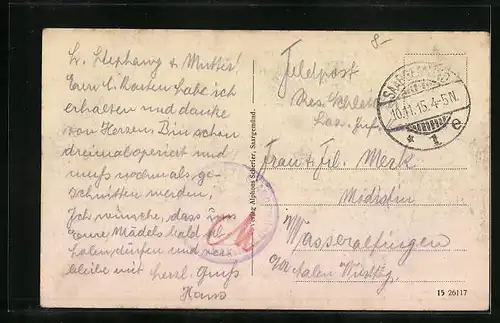 8-
L. Stephany & Mutti!
Eure l. Karten habe ich
erhalten und danke
von Herzen. Bin schon
dreimal operiert und
muß nochmals ge-
schnitten werden,
Ich wünsche, dass
Eure Mädels bald
holen dürfen und
bleibe mit herzl. Gruß
Hans
Verlag Alphons Scherier, Saargemünd.
Feldpost
Res.
Laz.
SAARGEMÜND
10.11.15.4-5N.
* 1 e
Frau & Frl. Merk
Modistin
in Wasseralfingen
O/A Aalen Württbg.
15 26117